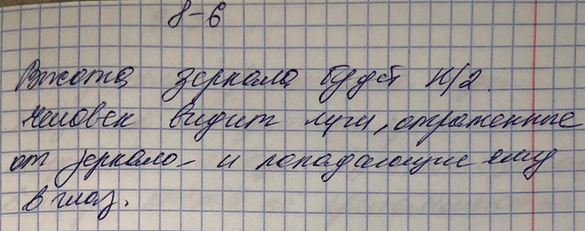 8-6
Высота зеркала будет H/2.
Человек видит лучи, отраженные
от зеркало- и попадающие ему
в глаз.